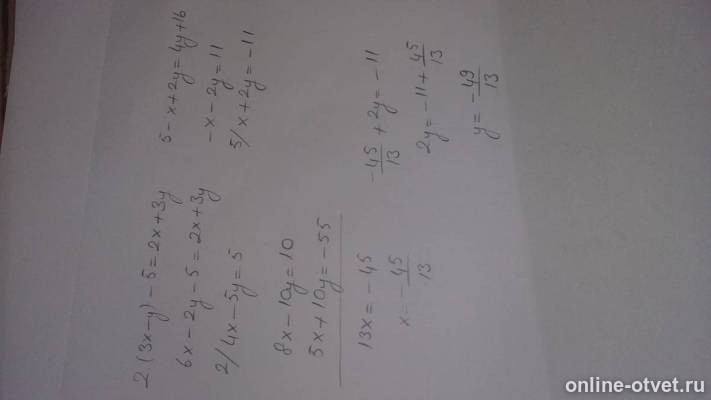 2·(3x-y)-5=2x+3y
6x-2y-5=2x+3y
2/4x-5y=5
8x-10y=10
5x+10y=-55
13x=-45
x=-45/13
5-x+2y=4y+16
-x-2y=11
5/x+2y=-11
-45/13+2y=-11
2y=-11+45/13
y=-49/13
online-otvet.ru